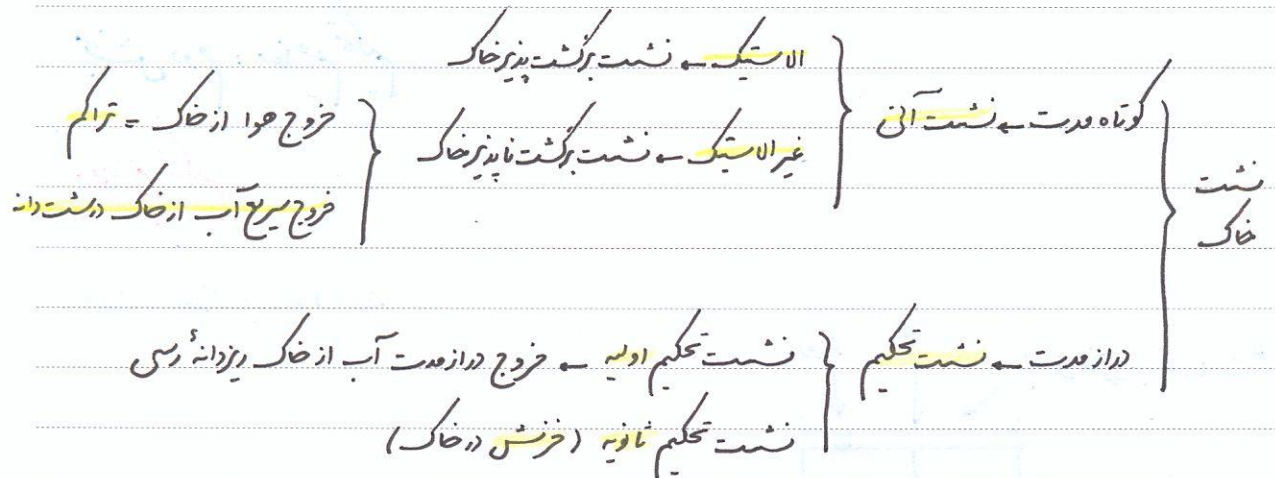 نشست خاک
کوتاه مدت ← نشست آنی
الاستیک ← نشست برگشت پذیر خاک
غیر الاستیک ← نشست برگشت ناپذیر خاک
خروج هوا از خاک = تراکم
خروج سریع آب از خاک درشت دانه
دراز مدت ← نشست تحکیم
نشست تحکیم اولیه ← خروج دراز مدت آب از خاک ریزدانهٔ رسی
نشست تحکیم ثانویه (خزش در خاک)